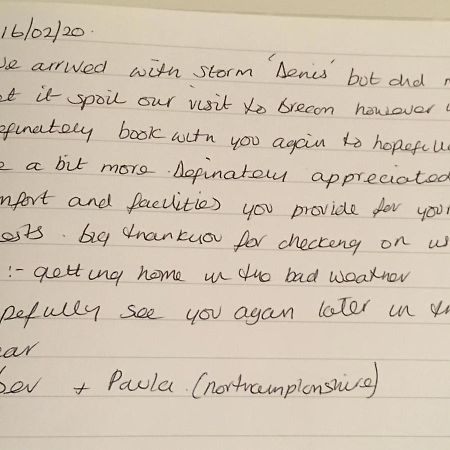 16/02/20.
We arrived with storm 'Denis' but did n
et it spoil our visit to brecon however
efinately book with you again to hopefull
e a bit more. Definately appreciated
mfort and facilities you provide for your
ests. big thankyou for checking on us
:- getting home in the bad weather
pefully see you again later in th
ear
Bev + Paula. (northamptonshire)